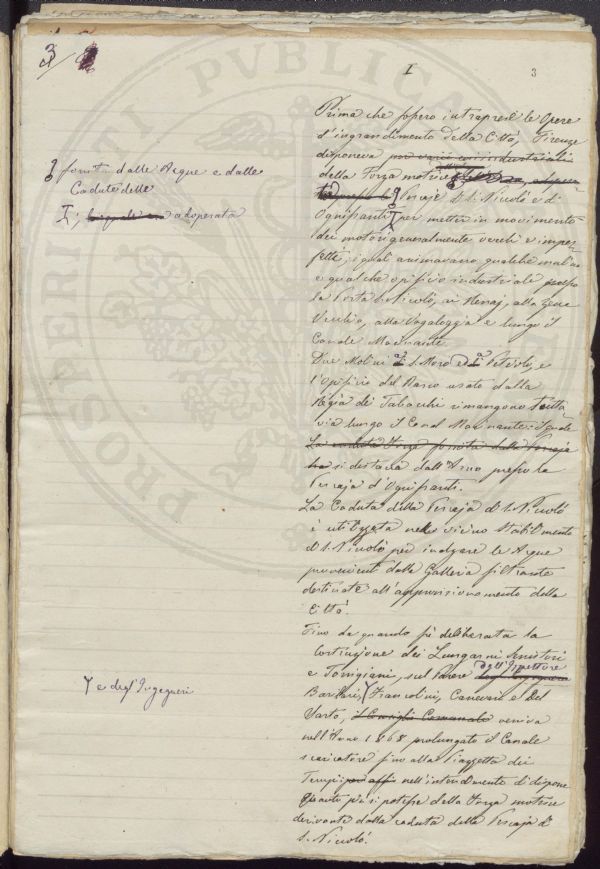 3
I
3
Prima che fossero intraprese le Opere
d'ingrandimento della Città, Firenze
disponeva per varii usi industriali
della Forza motrice
Pescaje di S. Niccolò e di
Ognissanti per metter in movimento
dei motori generalmente vecchi e imper-
fetti, i quali animavano qualche mulino
e qualche opificio industriale presso
la Porta S. Niccolò, ai Renaj, alla Zecca
Vecchia, alla Vagaloggia e lungo il
Canale Macinante.
Due Molini di S. Moro e di Petriolo, e
l'Opificio del Barco usato dalla
Regìa dei Tabacchi rimangono tutta
via lungo il Canal Macinante: il quale
La caduta forza fornita dalla Pescaja
ha si distacca dall'Arno presso la
Pescaja d'Ognissanti.
La Caduta della Pescaja di S. Niccolò
è utilizzata nel vicino Stabilimento
di S. Niccolò per inalzare le Acque
provenienti dalla Galleria filtrante
destinate all'approvisionamento della
Città.
Fino da quando fù deliberata la
costruzione dei Lungarni Serristori
e Torrigiani, sul parere degl'Ingegneri
dell'Ispettore
Francolini, Canevari e Del
Sarto, il Consiglio Comunale veniva
nell'Anno 1868 prolungato il Canale
scaricatore fino alla Piazzetta dei
Tempi nell'intendimento di dispone
quanto più si potesse della Forza motrice
derivante dalla caduta della Pescaja di
S. Niccolò.
fornita dalle Acque e dalle
Cadute delle
I; la quale era adoperata
e degl'Ingegneri